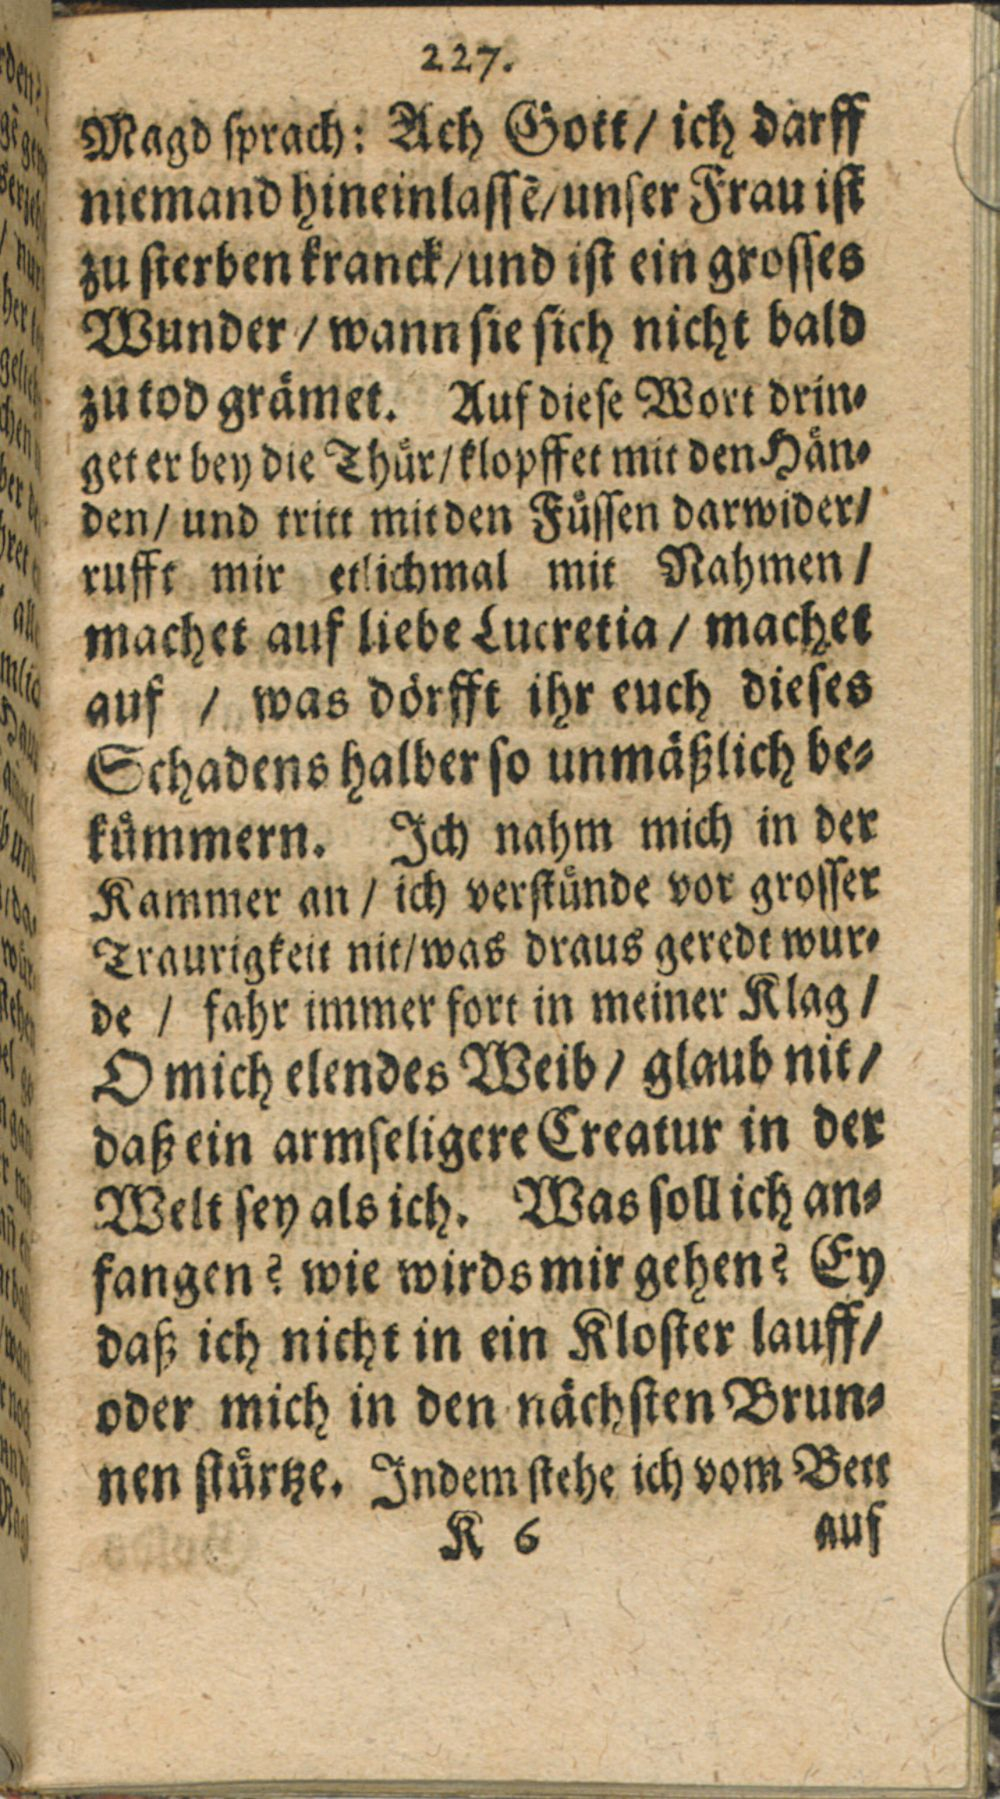 227.
Magd sprach: Ach Gott/ ich darff
niemand hineinlassẽ/unser Frau ist
zu sterben kranck/und ist ein grosses
Wunder/ wann sie sich nicht bald
zu tod grämet. Auf diese Wort drin-
get er bey die Thür/klopffet mit den Hän-
den/ und tritt mit den Füssen darwider/
rufft mir etlichmal mit Nahmen/
machet auf liebe Lucretia/ machet
auf / was dörfft ihr euch dieses
Schadens halber so unmäßlich be-
kümmern. Ich nahm mich in der
Kammer an/ ich verstünde vor grosser
Traurigkeit nit/was draus geredt wur-
de / fahr immer fort in meiner Klag/
O mich elendes Weib/ glaub nit/
daß ein armseligere Creatur in der
Welt sey als ich. Was soll ich an-
fangen? wie wirds mir gehen? Ey
daß ich nicht in ein Kloster lauff/
oder mich in den nächsten Brun-
nen stürtze. Indem stehe ich vom Bett
K 6 auf